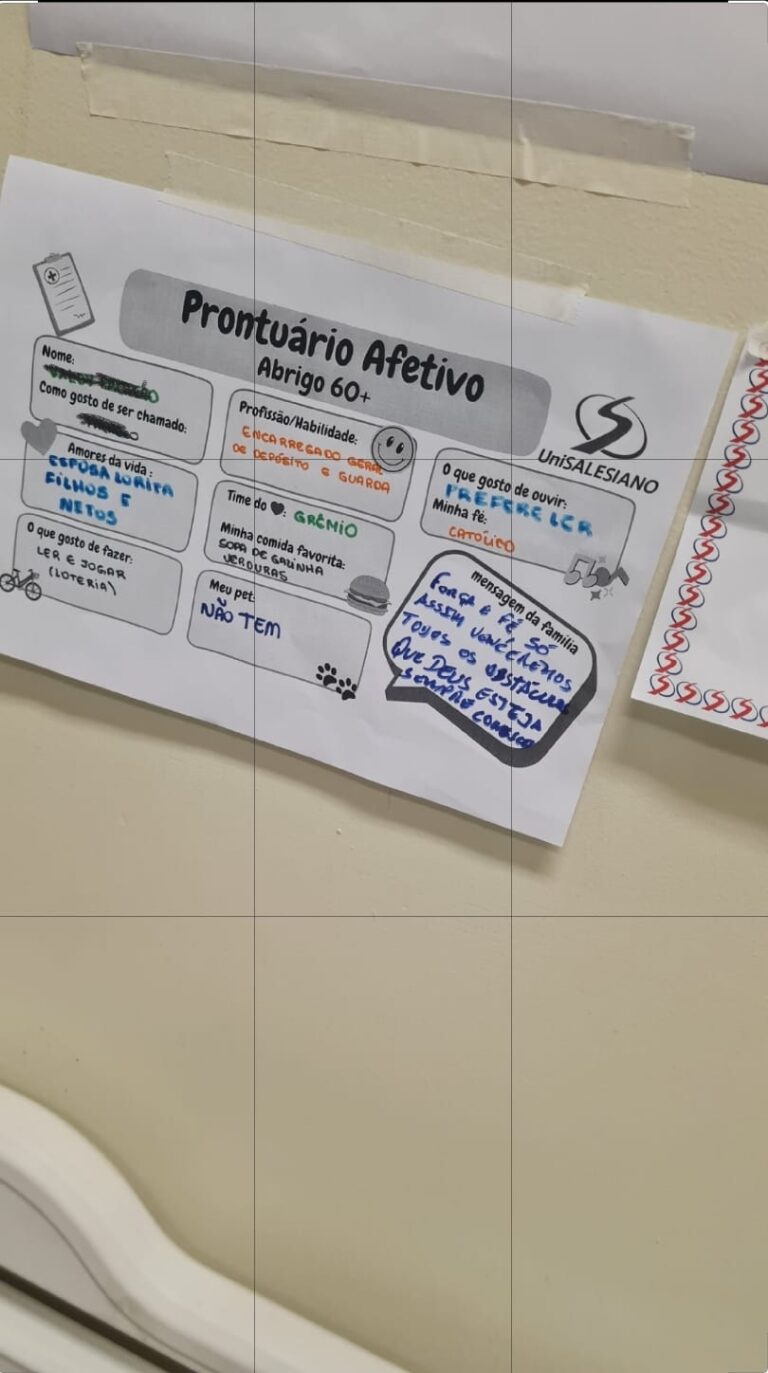 Prontuário Afetivo
Abrigo 60+
UniSALESIANO
Nome:
Como gosto de ser chamado:
Amores da vida:
ESPOSA LORITA
FILHOS E
NETOS
O que gosto de fazer:
LER E JOGAR
(LOTERIA)
Profissão/Habilidade:
ENCARREGADO GERAL
DE DEPÓSITO E GUARDA
Time do 🖤: GRÊMIO
Minha comida favorita:
SOPA DE GALINHA
VERDURAS
Meu pet:
NÃO TEM
O que gosto de ouvir:
PREFERE LER
Minha fé:
CATÓLICO
mensagem da família
FORÇA E FÉ SÓ
ASSIM VENCEREMOS
TODOS OS OBSTÁCULOS
QUE DEUS ESTEJA
SEMPRE CONOSCO